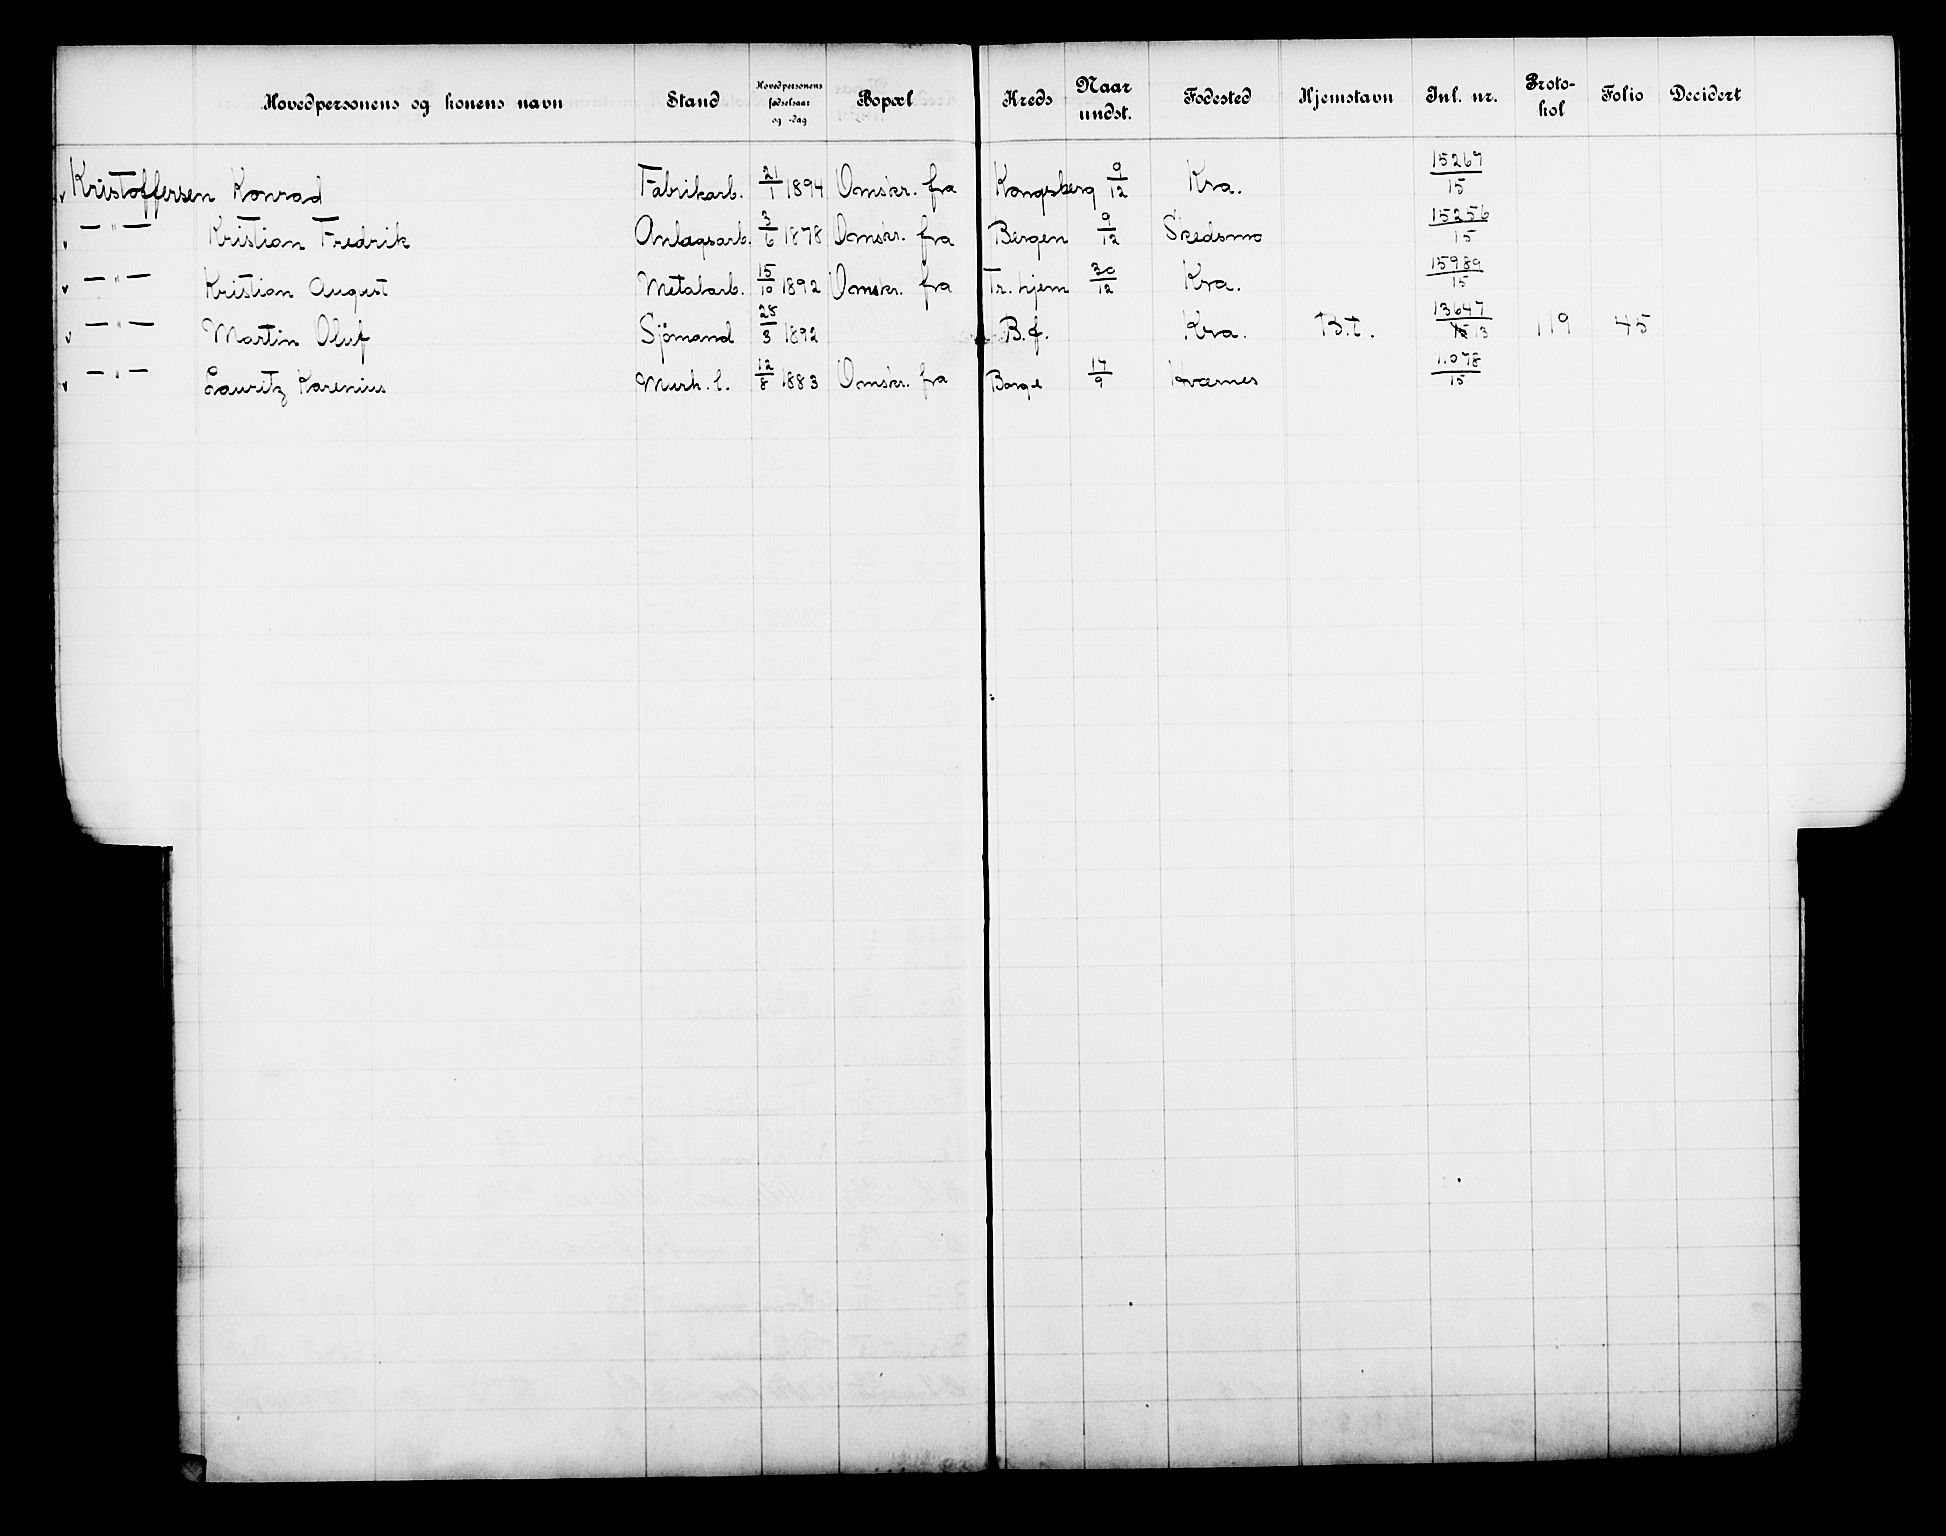 Hovedpersonens og konens navn Stand Hovedpersonens fødselsaar og -dag Bopæl Kreds Naar undst. Fødested Hjemstavn Inl. nr. Proto-kol Folio Decidert
Kristoffersen Konrad Fabrikarb. 21/1 1894 Omskr. fra Kongsberg 9/12 Kra. 15267/15
— " — Kristian Fredrik Anlægsarb. 3/6 1878 Omskr. fra Bergen 9/12 Skedsmo 15256/15
— " — Kristian August Metalarb. 15/10 1892 Omskr. fra Tr.hjem 30/12 Kra. 15989/15
— " — Martin Oluf Sjömand 1892 B.f. Kra. B.t. 13647/13 119 45
— " — Lauritz Karenius Murh.l. 12/8 1883 Omskr. fra Borge 17/9 Kværnes 11078/15